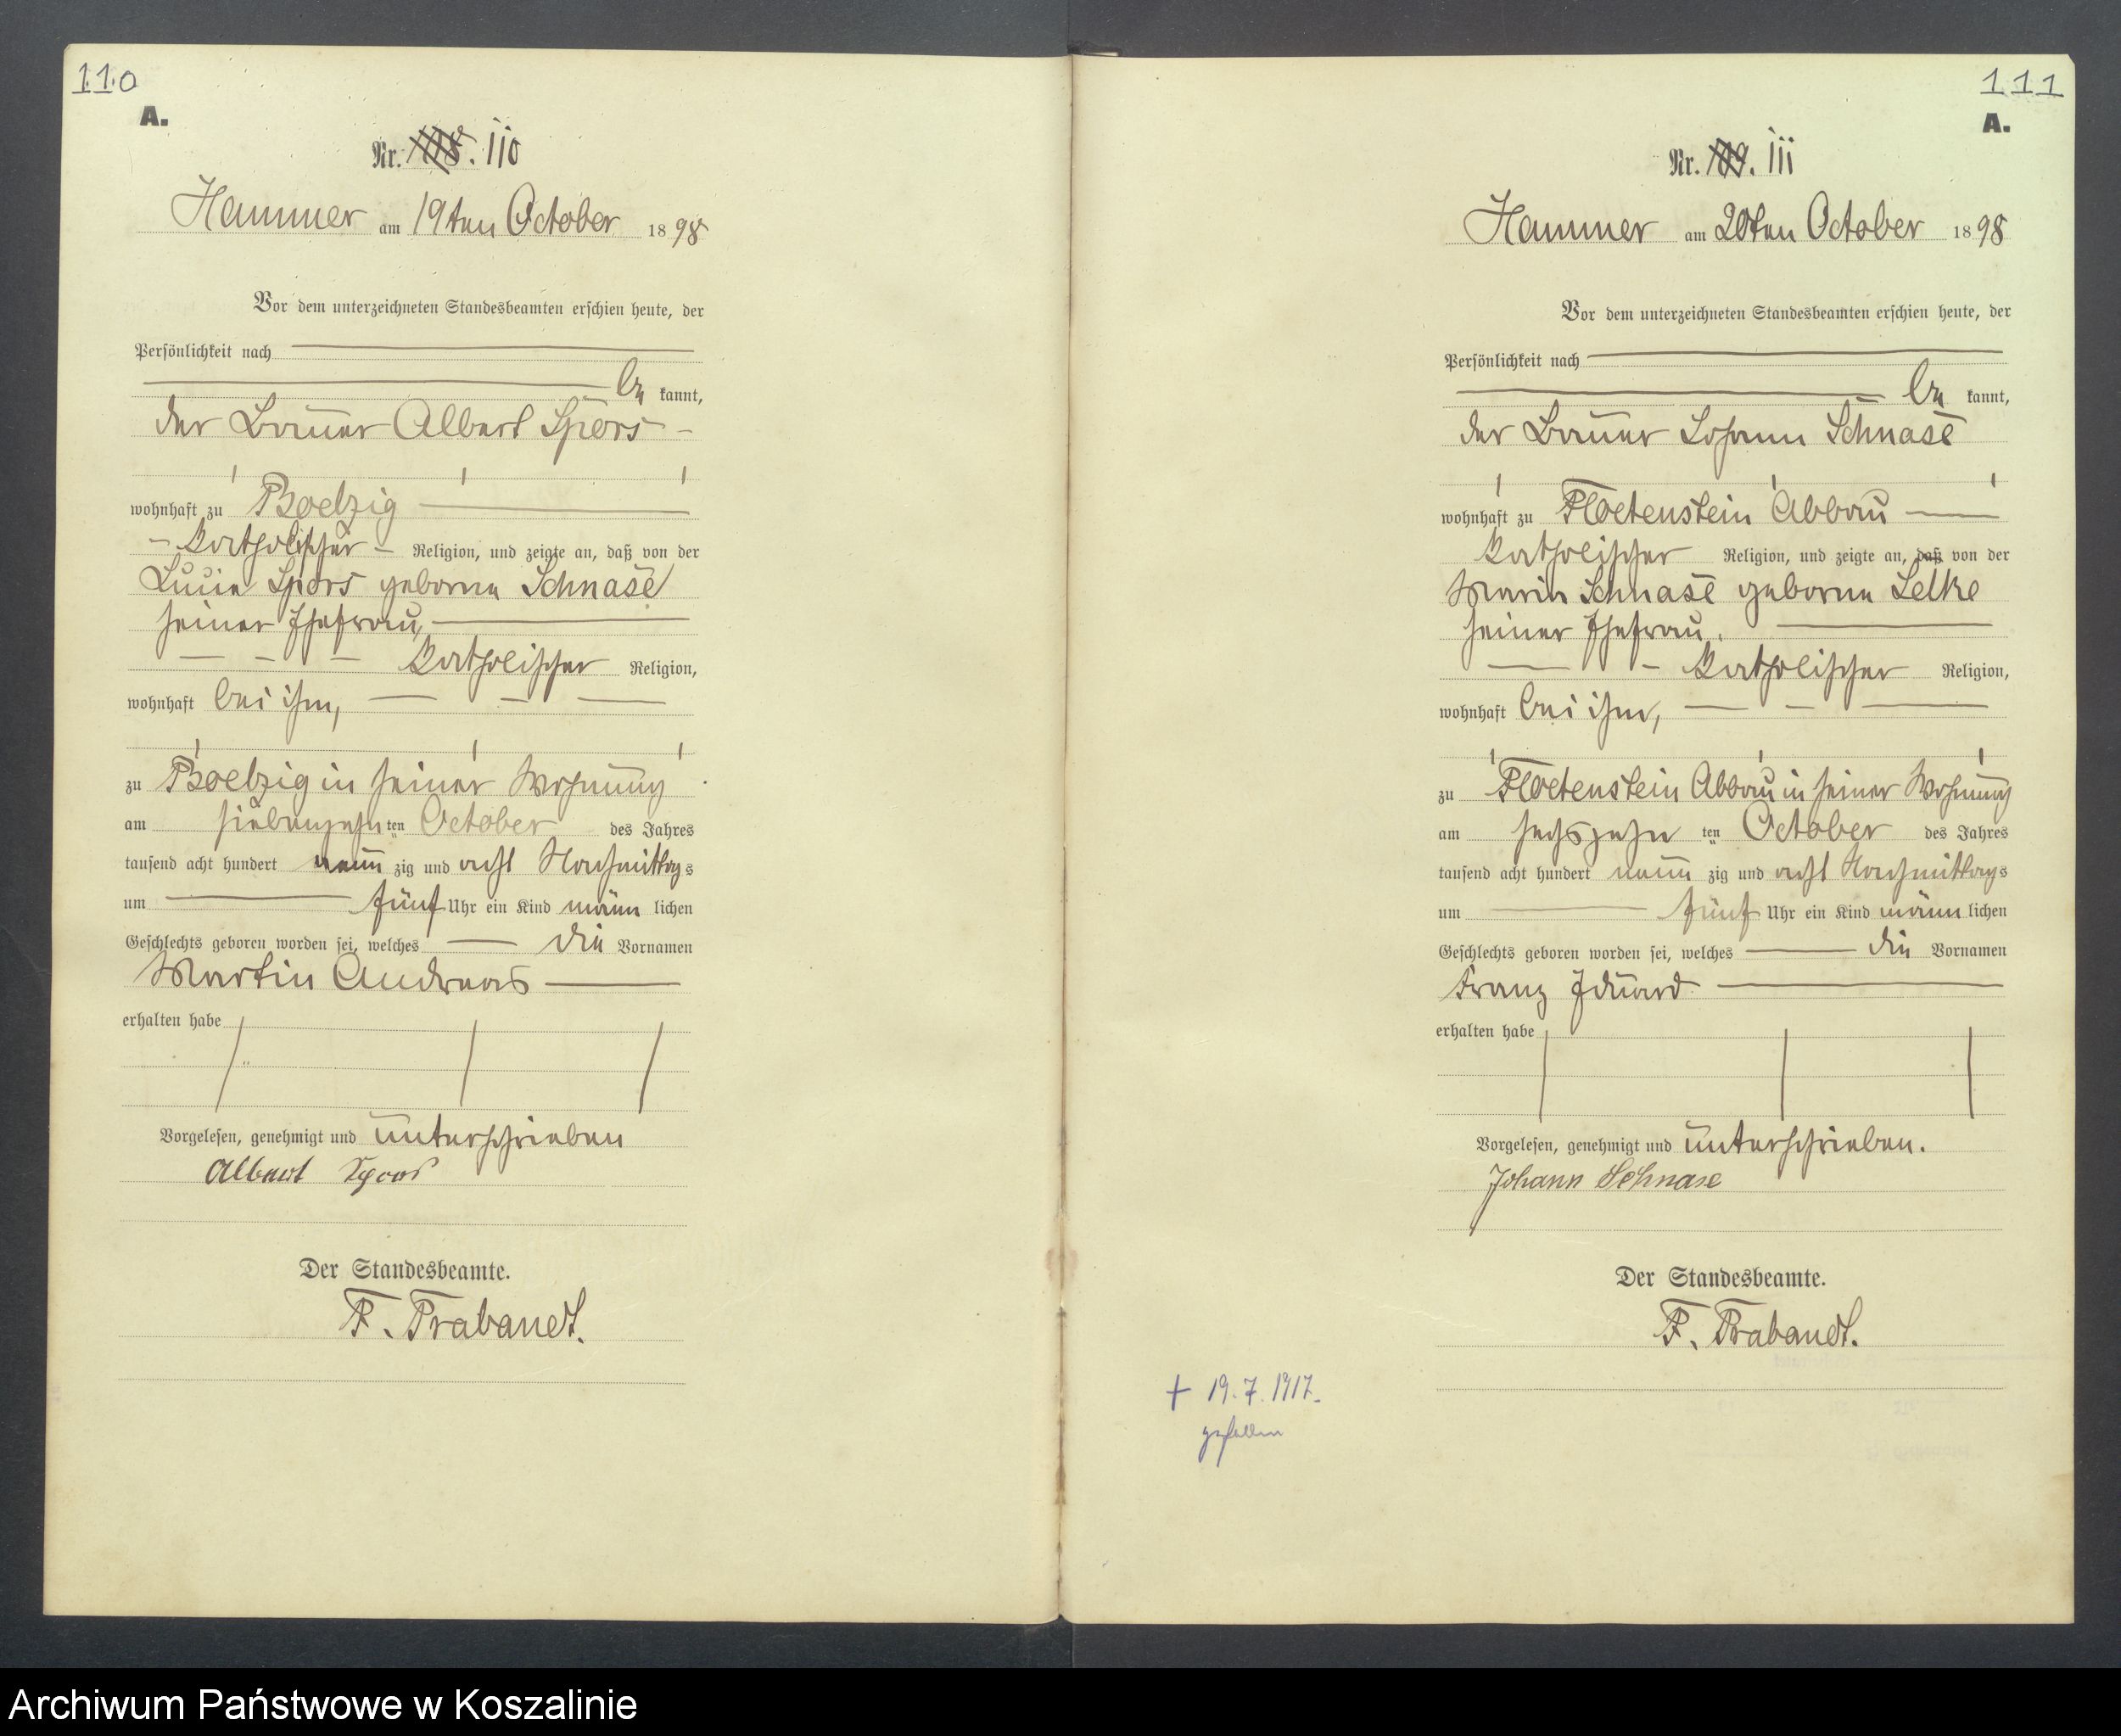 110
A.
Nr. 108. 110
Hammer am 19ten October 1898
Vor dem unterzeichneten Standesbeamten erschien heute, der
Persönlichkeit nach
be kannt,
der Bauer Albert Spors
wohnhaft zu Boelzig
katholischer Religion, und zeigte an, daß von der
Spors geborne Schnase
seiner Ehefrau,
katholischer Religion,
wohnhaft bei ihm,
zu Boelzig in seiner Wohnung
am siebenzehn ten October des Jahres
tausend acht hundert neun zig und acht Nachmittags
um fünf Uhr ein Kind männ lichen
Geschlechts geboren worden sei, welches die Vornamen
Martin Andreas
erhalten habe
Vorgelesen, genehmigt und unterschrieben
Albert Spors
Der Standesbeamte.
F. Trabandt.
111
A.
Nr. 109. 111
Hammer am 20ten October 1898
Vor dem unterzeichneten Standesbeamten erschien heute, der
Persönlichkeit nach
be kannt,
der Bauer Johann Schnase
wohnhaft zu Floetenstein Abbau
katholischer Religion, und zeigte an, daß von der
Maria Schnase geborne Selke
seiner Ehefrau,
katholischer Religion,
wohnhaft bei ihm,
zu Floetenstein Abbau in seiner Wohnung
am sechszehn ten October des Jahres
tausend acht hundert neun zig und acht Nachmittags
um fünf Uhr ein Kind männ lichen
Geschlechts geboren worden sei, welches die Vornamen
Franz Eduard
erhalten habe
Vorgelesen, genehmigt und unterschrieben.
Johann Schnase
Der Standesbeamte.
F. Trabandt.
+ 19.7.1917.
gefallen
Archiwum Państwowe w Koszalinie